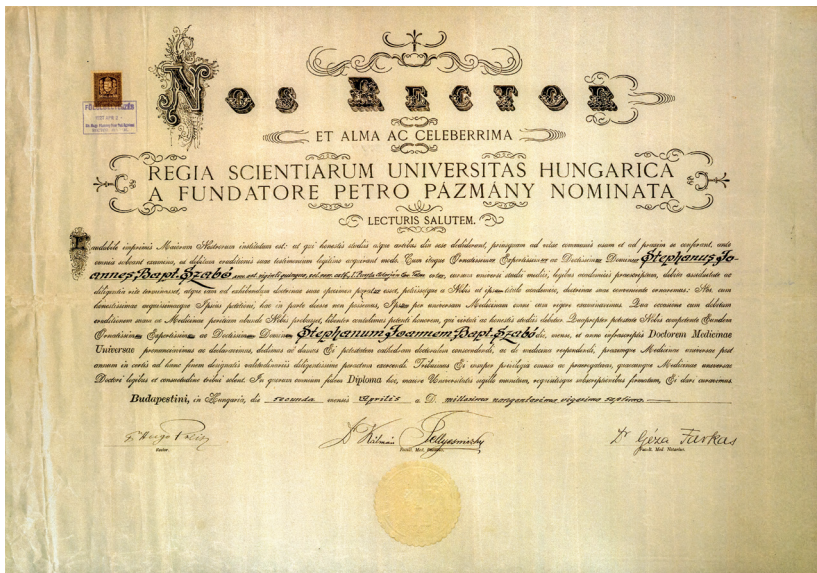 NOS RECTOR
ET ALMA AC CELEBERRIMA
REGIA SCIENTIARUM UNIVERSITAS HUNGARICA
A FUNDATORE PETRO PÁZMÁNY NOMINATA
LECTURIS SALUTEM.
Laudabile imprimis Maiorum Nostrorum institutum est: ut qui honestis studiis atque artibus diu se dediderant, priusquam ad vitae communis usum et ad praxim se conferant, ante
omnia subeant examina, ac debitum eruditionis suae testimonium legitime acquirant modo. Cum itaque Ornatissimus Expertissimus ac Doctissimus Dominus Stephanus Jo-
annes Bapt. Szabó
diligentia rite terminasset, atque iam ad exhibendum doctrinae suae specimen paratus esset, petiissetque a Nobis ut ipsum titulo academico, doctrinae suae conveniente ornaremus: Nos eam
honestissimam aequissimamque Ipsius petitionem, hac in parte deesse non potuimus, Ipsum per universam Medicinam omni cum rigore examinavimus. Qua occasione cum debitum
eruditionem suam ac Medicinae peritiam abunde Nobis probasset, libenter contulimus petenti honorem, qui virtuti ac honestis studiis debetur. Quapropter potestate Nobis competente Eundem
Ornatissimum Expertissimum ac Doctissimum Dominum Stephanum Joannem Bapt. Szabó die, mense, et anno infrascriptis Doctorem Medicinae
Universae pronunciavimus ac declaravimus, dedimus ac damus Ei potestatem cathedram doctoralem conscendendi, ac de medicina respondendi, praximque Medicinae universae post
Doctori legibus et consuetudine tribui solent. In quorum omnium fidem Diploma hoc, maiore Universitatis sigillo munitum, requisitisque subscriptionibus firmatum, Ei dari curavimus.
Budapestini, in Hungaria, die secunda mensis Aprilis a D. millesimo nongentesimo vigesimo septimo
Dr Kálmán Tellyesniczky
Dr Géza Farkas
Rector.